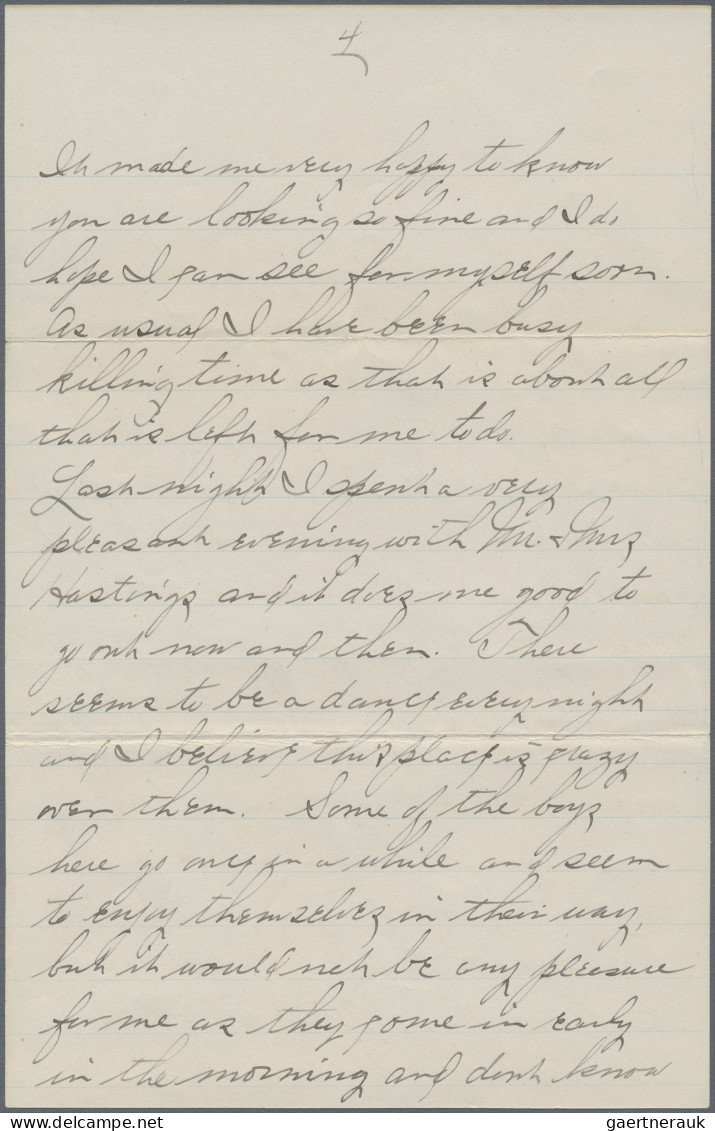 4
It made me very happy to know
you are looking so fine and I do
hope I can see for myself soon.
As usual I have been busy
killing time as that is about all
that is left for me to do.
Last night I spent a very
pleasant evening with Mr. & Mrs
Hastings and it does me good to
go out now and then. There
seems to be a dance every night
and I believe this place is crazy
over them. Some of the boys
here go once in a while and seem
to enjoy themselves in their way,
but it would not be any pleasure
for me as they come in early
in the morning and dont know
gaertnerauk